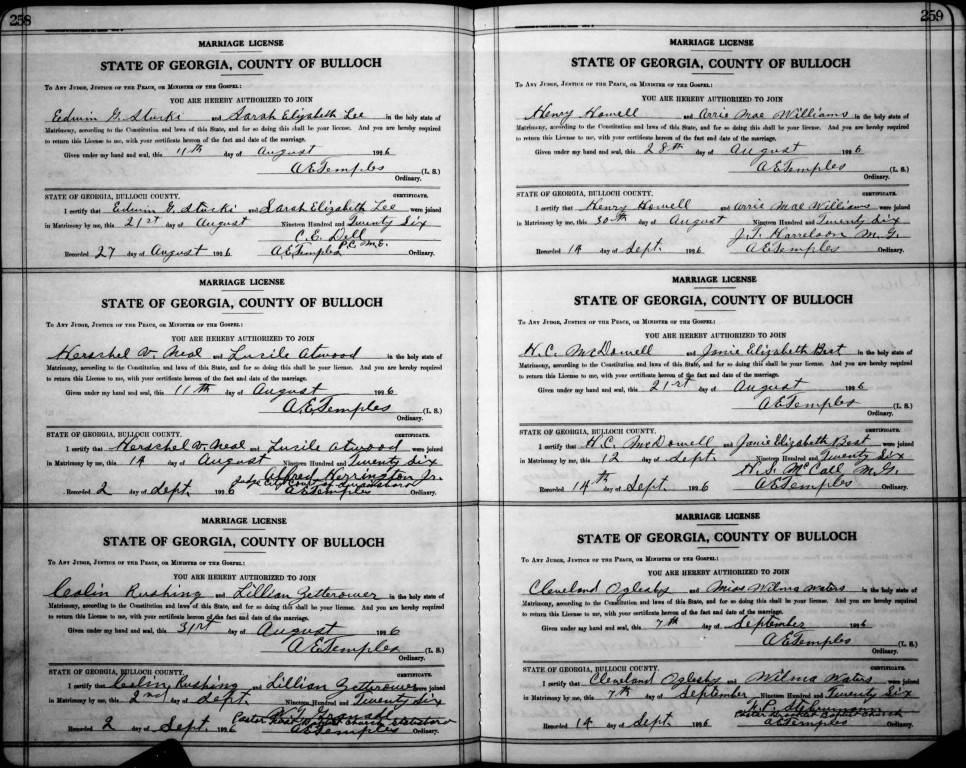 258
MARRIAGE LICENSE
STATE OF GEORGIA, COUNTY OF BULLOCH
To Any Judge, Justice of the Peace, or Minister of the Gospel:
YOU ARE HEREBY AUTHORIZED TO JOIN
Edwin G. Stucki and Sarah Elizabeth Lee in the holy state of
Matrimony, according to the Constitution and laws of this State, and for so doing this shall be your license. And you are hereby required
to return this License to me, with your certificate hereon of the fact and date of the marriage.
Given under my hand and seal, this 11th day of August 1926
A E Temples (L. S.)
Ordinary.
STATE OF GEORGIA, BULLOCH COUNTY. CERTIFICATE.
I certify that Edwin G. Stucki and Sarah Elizabeth Lee were joined
in Matrimony by me, this 21st day of August Nineteen Hundred and Twenty Six
C. E. Dell
P.C. M.E.
Recorded 27 day of August 1926 A E Temples Ordinary.
MARRIAGE LICENSE
STATE OF GEORGIA, COUNTY OF BULLOCH
To Any Judge, Justice of the Peace, or Minister of the Gospel:
YOU ARE HEREBY AUTHORIZED TO JOIN
Herschel V. Neal and Lucile Atwood in the holy state of
Matrimony, according to the Constitution and laws of this State, and for so doing this shall be your license. And you are hereby required
to return this License to me, with your certificate hereon of the fact and date of the marriage.
Given under my hand and seal, this 11th day of August 1926
A E Temples (L. S.)
Ordinary.
STATE OF GEORGIA, BULLOCH COUNTY. CERTIFICATE.
I certify that Herschel V. Neal and Lucile Atwood were joined
in Matrimony by me, this 14 day of August Nineteen Hundred and Twenty Six
Alfred Herrington Jr.
Judge City Court of Swainsboro
Recorded 2 day of Sept. 1926 A E Temples Ordinary.
MARRIAGE LICENSE
STATE OF GEORGIA, COUNTY OF BULLOCH
To Any Judge, Justice of the Peace, or Minister of the Gospel:
YOU ARE HEREBY AUTHORIZED TO JOIN
Colin Rushing and Lillian Zetterower in the holy state of
Matrimony, according to the Constitution and laws of this State, and for so doing this shall be your license. And you are hereby required
to return this License to me, with your certificate hereon of the fact and date of the marriage.
Given under my hand and seal, this 31st day of August 1926
A E Temples (L. S.)
Ordinary.
STATE OF GEORGIA, BULLOCH COUNTY. CERTIFICATE.
I certify that Colin Rushing and Lillian Zetterower were joined
in Matrimony by me, this 2nd day of Sept. Nineteen Hundred and Twenty Six
Recorded 2 day of Sept 1926 A E Temples Ordinary.
259
MARRIAGE LICENSE
STATE OF GEORGIA, COUNTY OF BULLOCH
To Any Judge, Justice of the Peace, or Minister of the Gospel:
YOU ARE HEREBY AUTHORIZED TO JOIN
Henry Howell and Arrie Mae Williams in the holy state of
Matrimony, according to the Constitution and laws of this State, and for so doing this shall be your license. And you are hereby required
to return this License to me, with your certificate hereon of the fact and date of the marriage.
Given under my hand and seal, this 28th day of August 1926
A E Temples (L. S.)
Ordinary.
STATE OF GEORGIA, BULLOCH COUNTY. CERTIFICATE.
I certify that Henry Howell and Arrie Mae Williams were joined
in Matrimony by me, this 30th day of August Nineteen Hundred and Twenty Six
J. T. Harrelson M. G.
Recorded 14 day of Sept. 1926 A E Temples Ordinary.
MARRIAGE LICENSE
STATE OF GEORGIA, COUNTY OF BULLOCH
To Any Judge, Justice of the Peace, or Minister of the Gospel:
YOU ARE HEREBY AUTHORIZED TO JOIN
H. C. McDowell and Janie Elizabeth Best in the holy state of
Matrimony, according to the Constitution and laws of this State, and for so doing this shall be your license. And you are hereby required
to return this License to me, with your certificate hereon of the fact and date of the marriage.
Given under my hand and seal, this 21st day of August 1926
A E Temples (L. S.)
Ordinary.
STATE OF GEORGIA, BULLOCH COUNTY. CERTIFICATE.
I certify that H. C. McDowell and Janie Elizabeth Best were joined
in Matrimony by me, this 12 day of Sept. Nineteen Hundred and Twenty Six
H. S. McCall M. G.
Recorded 14th day of Sept. 1926 A E Temples Ordinary.
MARRIAGE LICENSE
STATE OF GEORGIA, COUNTY OF BULLOCH
To Any Judge, Justice of the Peace, or Minister of the Gospel:
YOU ARE HEREBY AUTHORIZED TO JOIN
Cleveland Oglesby and Miss Wilma Waters in the holy state of
Matrimony, according to the Constitution and laws of this State, and for so doing this shall be your license. And you are hereby required
to return this License to me, with your certificate hereon of the fact and date of the marriage.
Given under my hand and seal, this 7th day of September 1926
A E Temples (L. S.)
Ordinary.
STATE OF GEORGIA, BULLOCH COUNTY. CERTIFICATE.
I certify that Cleveland Oglesby and Wilma Waters were joined
in Matrimony by me, this 7th day of September Nineteen Hundred and Twenty Six
Baptist Church
Recorded 14 day of Sept. 1926 A E Temples Ordinary.